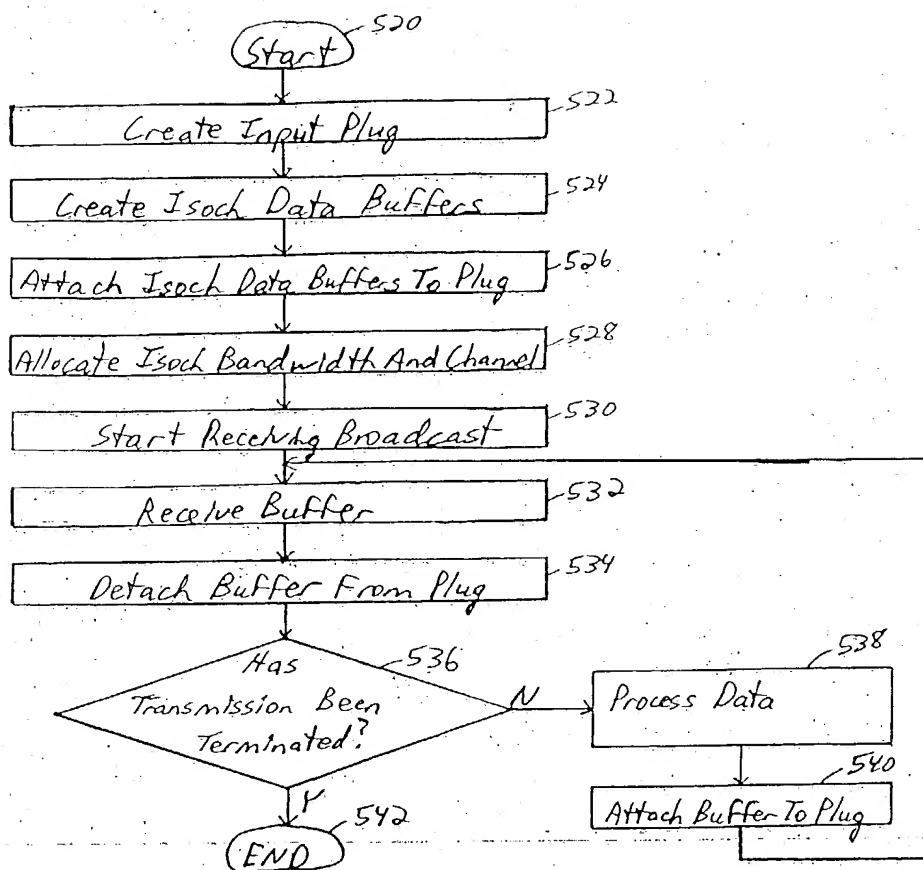 520
Start
522
Create Input Plug
524
Create Isoch Data Buffers
526
Attach Isoch Data Buffers To Plug
528
Allocate Isoch Bandwidth And Channel
530
Start Receiving Broadcast
532
Receive Buffer
534
Detach Buffer From Plug
536
Has
Transmission Been
Terminated?
N
Y
538
Process Data
540
Attach Buffer To Plug
542
END